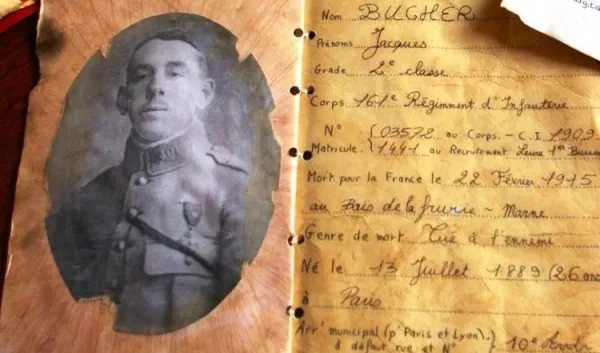 Nom BUCHER
Prénoms Jacques
Grade 2e classe
Corps 161e Régimment d'Infanterie
N° {03572 au Corps. - C.I. 1909
Matricule. {1441 au Recrutement Seine 1er Bureau
Mort pour la France le 22 Février 1915
au Bois de la Grurie - Marne
Genre de mort Tué à l'ennemi
Né le 13 Juillet 1889 (26 ans
à Paris
Arrt municipal (pr Paris et Lyon),
à défaut rue et N° } 10e